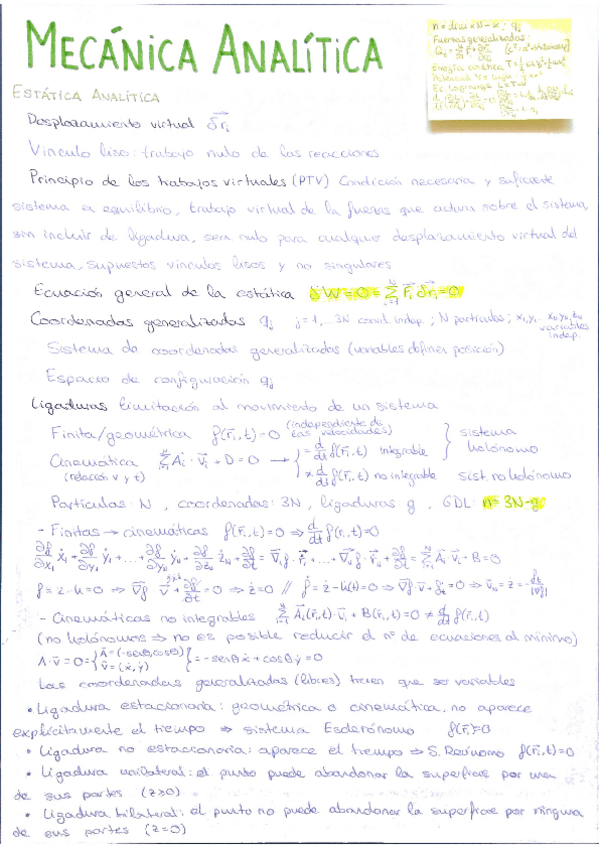 MECÁNICA ANALÍTICA
Fuerzas generalizadas:
Energía cinética T =
ESTÁTICA ANALÍTICA
Desplazamiento virtual δr⃗ᵢ
Vínculo liso: trabajo nulo de las reacciones
Principio de los trabajos virtuales (PTV) Condición necesaria y suficiente
sistema en equilibrio, trabajo virtual de la fuerzas que actúan sobre el sistema,
sin incluir de ligadura, sea nulo para cualquier desplazamiento virtual del
sistema, supuestos vínculos lisos y no singulares
Ecuación general de la estática δW = 0 = Σ F⃗ᵢ δr⃗ᵢ = 0
Coordenadas generalizadas qⱼ j=1,...3N coord. indep.; N partículas; x₁,y₁...
variables
indep.
Sistema de coordenadas generalizadas (variables definen posición)
Espacio de configuración qⱼ
Ligaduras limitación al movimiento de un sistema
Finita/geométrica f(r⃗ᵢ,t)=0 (independiente de las velocidades) } sistema
Cinemática Σ A⃗ᵢ·v⃗ᵢ + D = 0 → { = d/dt f(r⃗ᵢ,t) integrable holónomo
(relación v y t) ≠ d/dt f(r⃗ᵢ,t) no integrable sist. no holónomo
Partículas: N, coordenadas: 3N, ligaduras g, GDL: n = 3N-g
- Finitas → cinemáticas f(r⃗ᵢ,t)=0 ⇒ d/dt f(r⃗ᵢ,t)=0
∂f/∂x₁ ẋ₁ + ∂f/∂y₁ ẏ₁ + ... + ∂f/∂t = Σ A⃗ᵢ·v⃗ᵢ + B = 0
- Cinemáticas no integrables Σ A⃗ᵢ(r⃗ᵢ,t)·v⃗ᵢ + B(r⃗ᵢ,t) = 0 ≠ d/dt f(r⃗ᵢ,t)
(no holónomos ⇒ no es posible reducir el nº de ecuaciones al mínimo)
A·v⃗ = 0 = { A⃗ = (-senθ, cosθ) v⃗ = (ẋ, ẏ) } = -senθ ẋ + cosθ ẏ = 0
Las coordenadas generalizadas (libres) tienen que ser variables
• Ligadura estacionaria: geométrica o cinemática, no aparece
explícitamente el tiempo ⇒ sistema Esclerónomo f(r⃗ᵢ)=0
• Ligadura no estacionaria: aparece el tiempo ⇒ S. Reónomo f(r⃗ᵢ,t)=0
• Ligadura unilateral: el punto puede abandonar la superficie por una
de sus partes (z≥0)
• Ligadura bilateral: el punto no puede abandonar la superficie por ninguna
de sus partes (z=0)